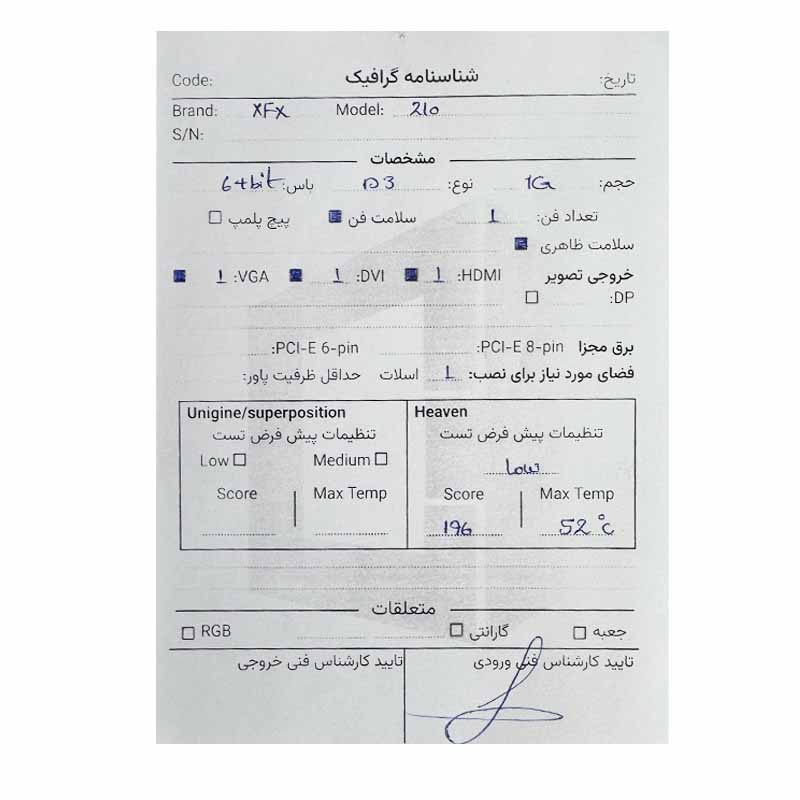 تاریخ: شناسنامه گرافیک Code:
Brand: XFX Model: 210
S/N:
مشخصات
حجم: 1G نوع: D3 باس: 64bit
تعداد فن: 1 سلامت فن پیچ پلمپ
سلامت ظاهری
خروجی تصویر HDMI: 1 DVI: 1 VGA: 1
DP:
برق مجزا PCI-E 8-pin: PCI-E 6-pin:
فضای مورد نیاز برای نصب: 1 اسلات حداقل ظرفیت پاور:
Unigine/superposition Heaven
تنظیمات پیش فرض تست تنظیمات پیش فرض تست
Low Medium low
Score Max Temp Score Max Temp
196 52°C
متعلقات
جعبه گارانتی RGB
تایید کارشناس فنی ورودی تایید کارشناس فنی خروجی